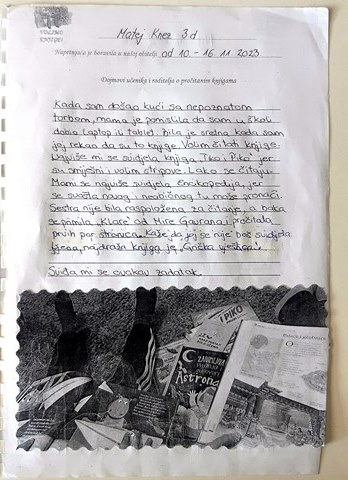 PUTUJUĆI
KNJIGOBUS
Matej Knez 3.d
Naprtnjača je boravila u našoj obitelji od 10. - 16. 11. 2023
Dojmovi učenika i roditelja o pročitanim knjigama
Kada sam došao kući sa nepoznatom
torbom, mama je pomislila da sam u školi
dobio laptop ili tablet. Bila je sretna kada sam
joj rekao da su to knjige. Volim čitati knjige.
Najviše mi se svidjela knjiga "Iko i Piko" jer
su smiješni i volim stripove. Lako se čitaju.
Mami se najviše svidjela Enciklopedija, jer
se svašta novog i neobičnog tu može pronaći.
Sestra nije bila raspoložena za čitanje, a baka
se primila "Klare" od Mire Gavrana i pročitala
prvih par stranica. Kaže da joj se nije baš svidjela.
Njena najdraža knjiga je "Grička vještica".
Sviđa mi se ovakav zadatak.
PIKO
IKO
ZANIMLJIVA
Astron